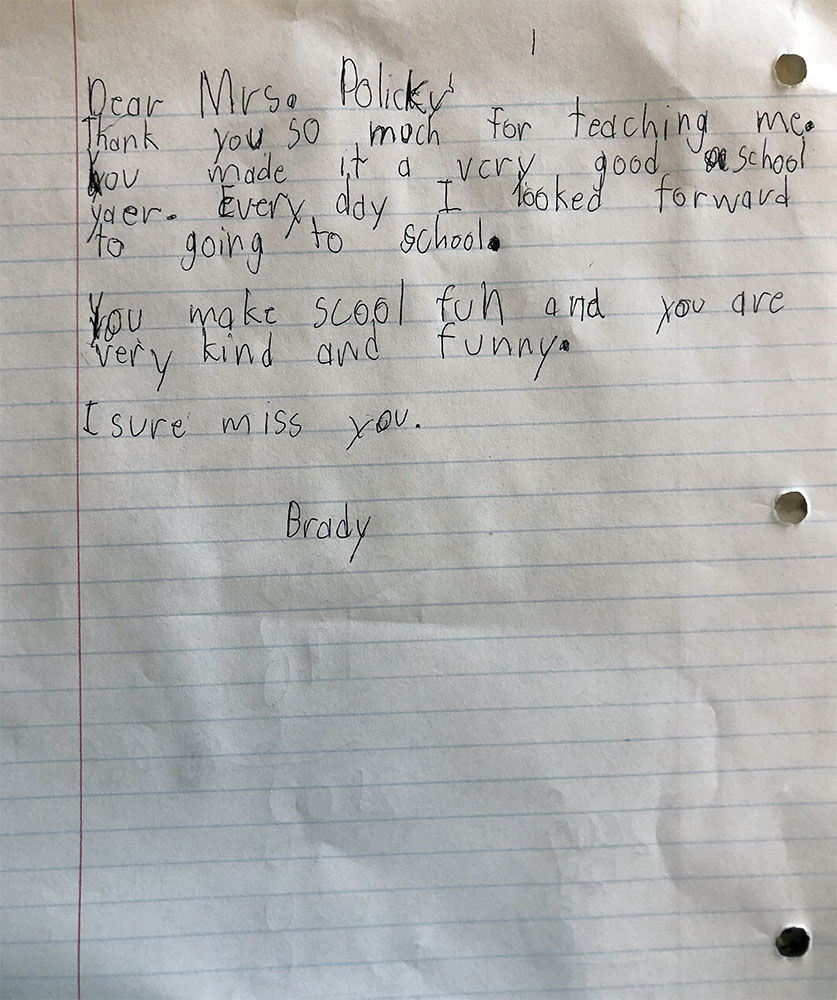 Dear Mrs. Policky
Thank you so much for teaching me.
You made it a very good school
yaer. Every day I looked forward
to going to school.
You make scool fun and you are
very kind and funny.
I sure miss you.
Brady